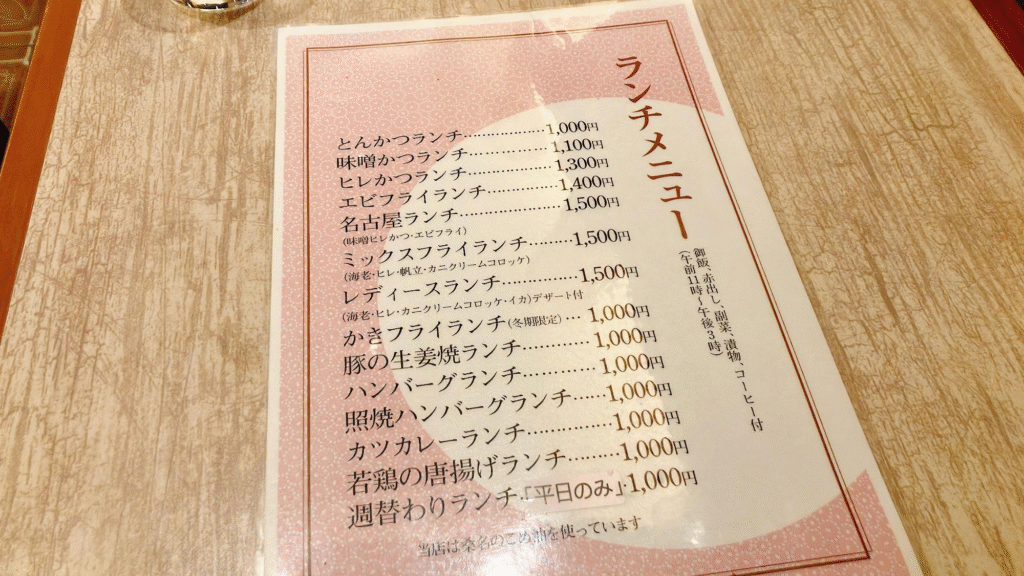 ランチメニュー
御飯、赤出し、副菜、漬物、コーヒー付
(午前11時〜午後3時)
とんかつランチ……………………1,000円
味噌かつランチ……………………1,100円
ヒレかつランチ……………………1,300円
エビフライランチ…………………1,400円
名古屋ランチ………………………1,500円
(味噌ヒレかつ・エビフライ)
ミックスフライランチ………1,500円
(海老・ヒレ・帆立・カニクリームコロッケ)
レディースランチ……………1,500円
(海老・ヒレ・カニクリームコロッケ・イカ)デザート付
かきフライランチ(冬期限定)…1,000円
豚の生姜焼ランチ……………1,000円
ハンバーグランチ……………1,000円
照焼ハンバーグランチ……1,000円
カツカレーランチ……………1,000円
若鶏の唐揚げランチ………1,000円
週替わりランチ・「平日のみ」・1,000円
当店は桑名のこめ油を使っています